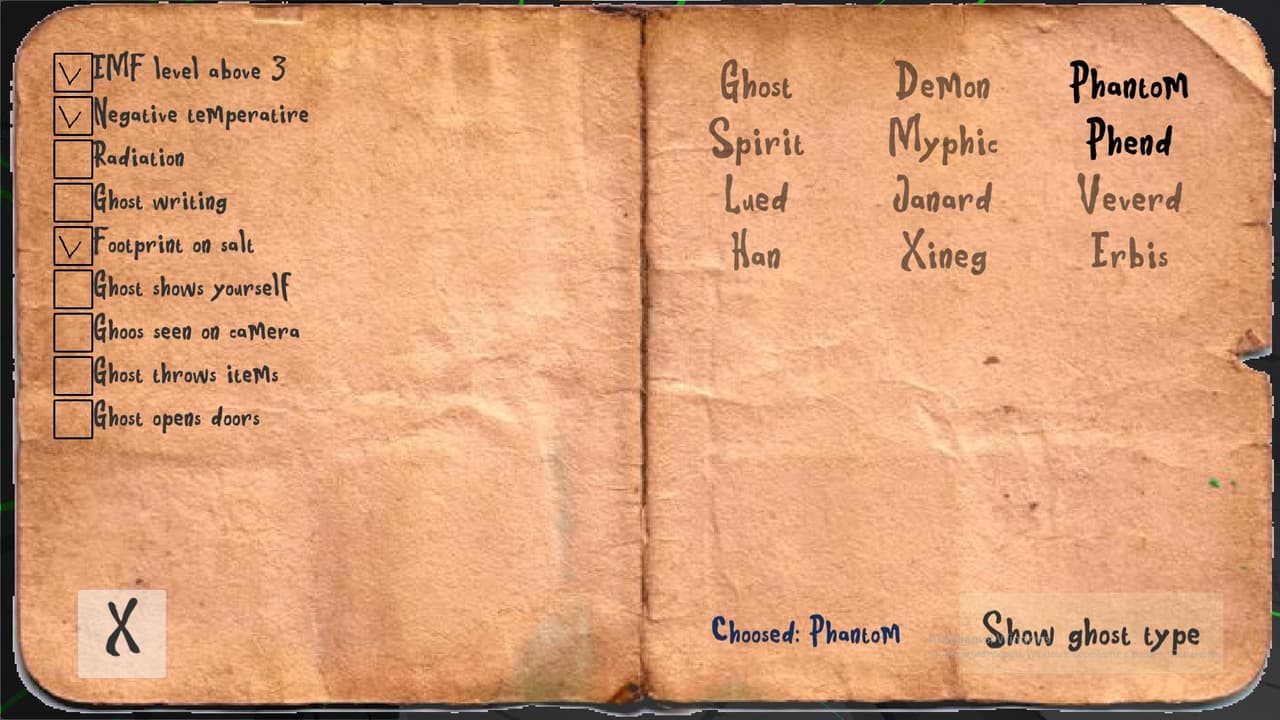 IMF level above 3
Negative temperatire
Radiation
Ghost writing
Footprint on salt
Ghost shows yourself
Ghoos seen on camera
Ghost throws items
Ghost opens doors
X
Ghost Demon Phantom
Spirit Myphic Phend
Lued Janard Veverd
Han Xineg Erbis
Choosed: Phantom
Show ghost type